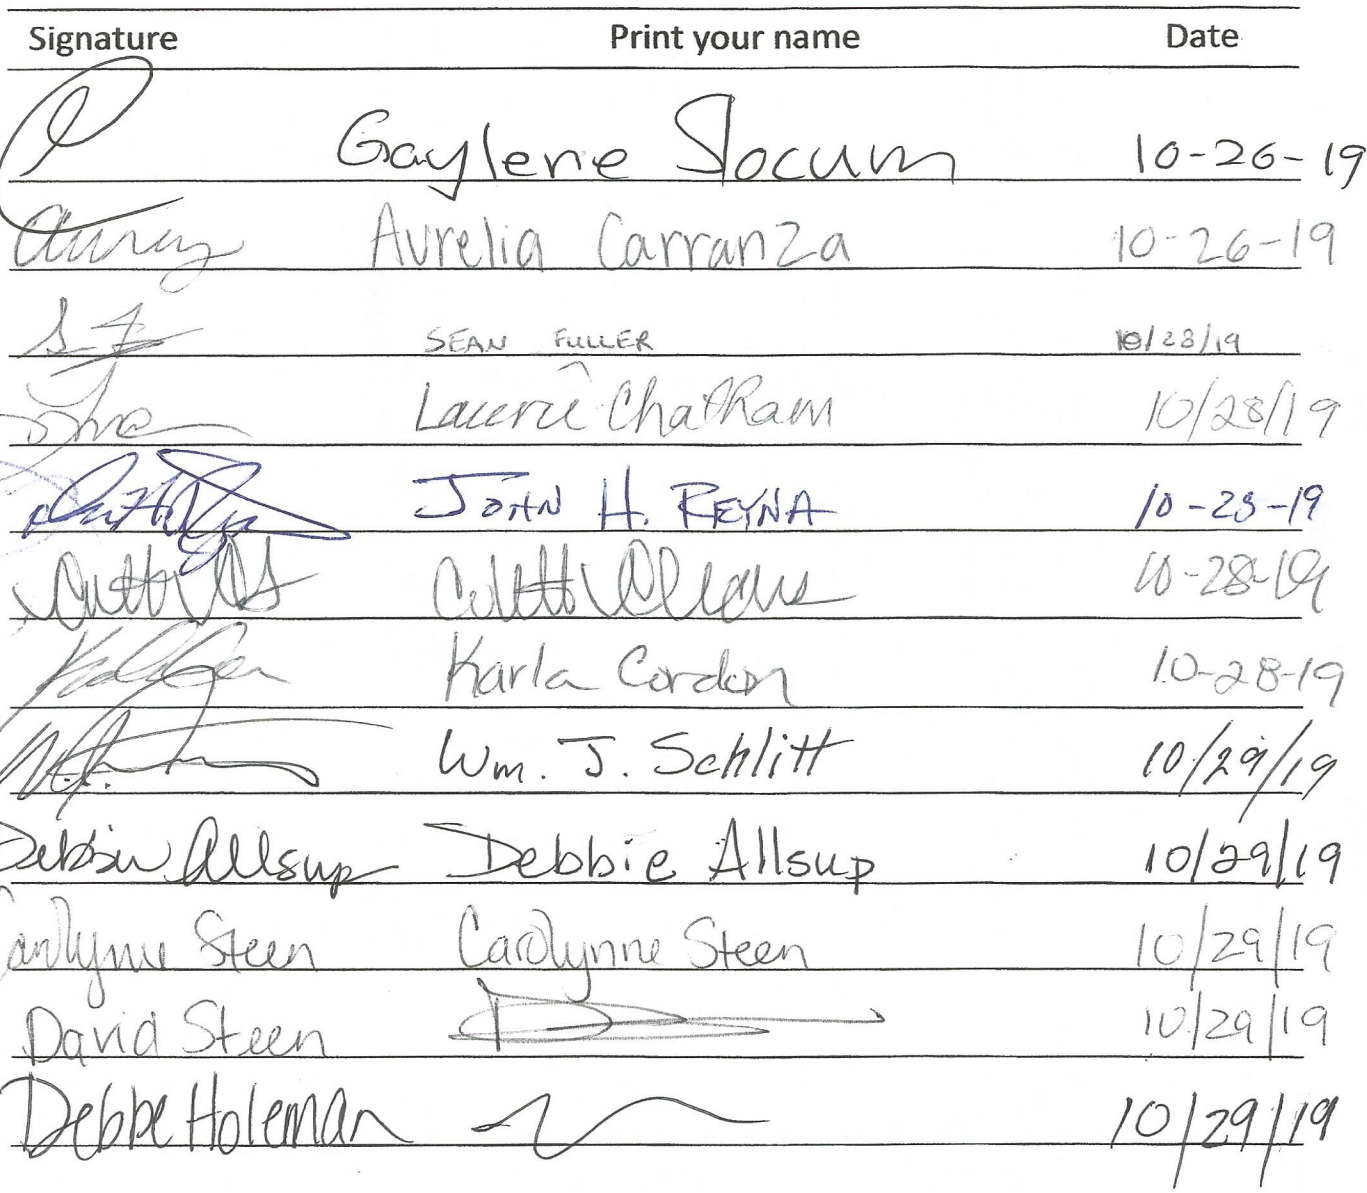 Signature Print your name Date
Gaylene Slocum 10-26-19
Aurelia Carranza 10-26-19
SEAN FULLER 10/28/19
Laurie Chatham 10/28/19
JOHN H. REYNA 10-28-19
10-28-19
Karla Cordon 10-28-19
Wm. J. Schlitt 10/29/19
Debbie Allsup Debbie Allsup 10/29/19
Carolynne Steen Carolynne Steen 10/29/19
David Steen 10/29/19
Debbe Holeman 10/29/19